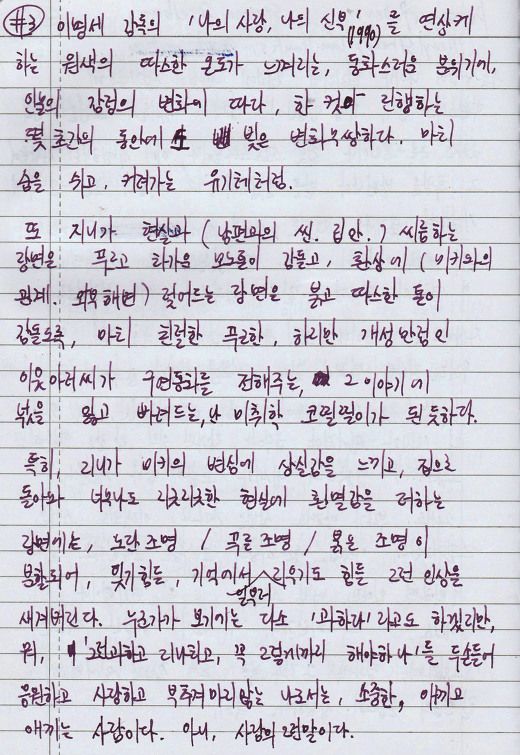 #3 이명세 감독의 '나의 사랑, 나의 신부'(1990)를 연상케
하는 원색의 따스한 온도가 느껴지는, 동화스러운 분위기에,
인물의 감정의 변화에 따라, 한 컷이 진행하는
몇 초간의 동안에 빛은 변화무쌍하다. 마치
숨을 쉬고, 커져가는 유기체처럼.
또 지니가 현실과 (남편과의 씬. 집안.) 씨름하는
장면은 푸르고 차가운 모노톤이 감돌고, 환상에 (미키와의
관계. 외목해변) 젖어드는 장면은 붉고 따스한 톤이
감돌도록, 마치 친절한 푸근한, 하지만 개성만점인
이웃아저씨가 구연동화를 전해주는, 그 이야기에
넋을 잃고 빠져드는, 난 미취학 코찔찔이가 된 듯하다.
특히, 지니가 미키의 변심에 상실감을 느끼고, 집으로
돌아와 너무나도 리얼리한 현실에 환멸감을 더하는
장면에는, 노란조명 / 푸른 조명 / 붉은 조명이
분할되어, 잊기힘든, 기억에서 일부러 지우기도 힘든 그런 인상을
새겨버린다. 누군가가 보기에는 다소 '과하다'라고도 하겠지만,
뭐, '그런과하고 지나치고, 꼭 그렇게까지 해야하나'를 두손들어
응원하고 사랑하고 부추겨마지않는 나로서는, 소중한, 아끼고
아끼는 사람이다. 아니, 사람의 그런말이다.